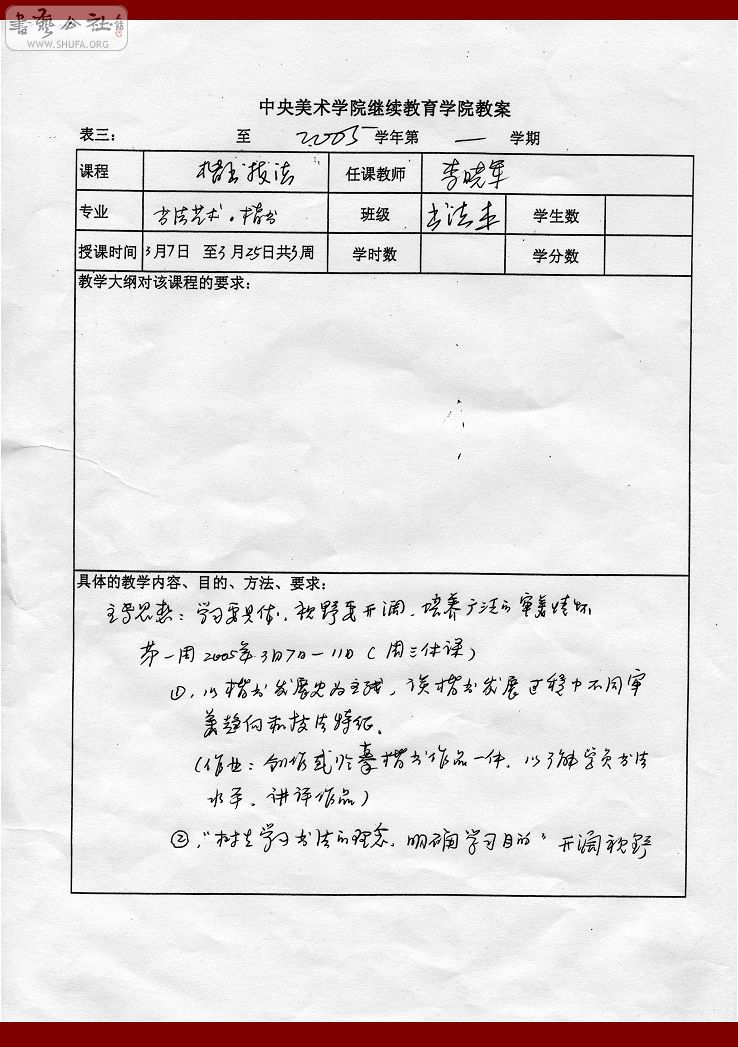 書藝公社
WWW.SHUFA.ORG
中央美术学院继续教育学院教案
表三： 至 2005 学年第 一 学期
课程 楷书技法 任课教师 李晓军
专业 书法艺术·楷书 班级 书法本 学生数
授课时间 3月7日 至3月25日共3周 学时数 学分数
教学大纲对该课程的要求：
具体的教学内容、目的、方法、要求：
主导思想：学习要具体，视野要开阔，培养广泛的审美情怀
第一周 2005年3月7日—11日（周三休课）
①，以楷书发展史为主线，谈楷书发展过程中不同审
美趋向和技法特征。
（作业：创作或临摹楷书作品一件，以了解学员书法
水平，讲评作品）
②，“树立学习书法的理念，明确学习目的”开阔视野